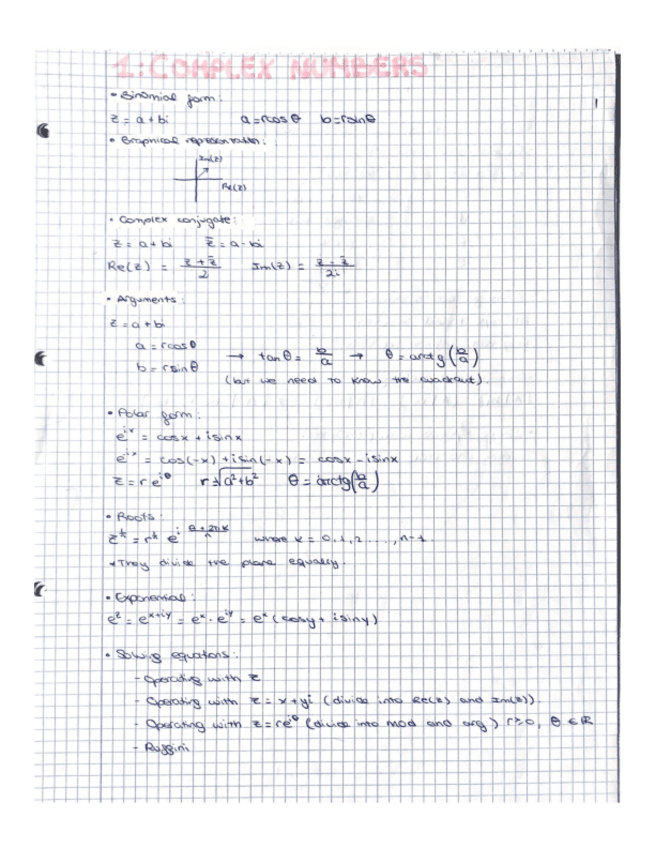 1: COMPLEX NUMBERS
• Binomial form:
z = a + bi a = rcosθ b = rsinθ
• Graphical representation:
Im(z)
Re(z)
• Complex conjugate:
z = a + bi z̄ = a - bi
Re(z) = (z + z̄)/2 Im(z) = (z - z̄)/2i
• Arguments:
z = a + bi
a = rcosθ
b = rsinθ → tanθ = b/a → θ = arctg(b/a)
(but we need to know the quadrant).
• Polar form:
e^ix = cosx + isinx
e^-ix = cos(-x) + isin(-x) = cosx - isinx
z = r e^iθ r = √(a² + b²) θ = arctg(b/a)
• Roots:
z^(1/n) = r^(1/n) e^(i (θ + 2πk)/n) where k = 0, 1, 2 ...., n-1
*They divide the plane equally.
• Exponential:
e^z = e^(x+iy) = e^x · e^iy = e^x (cosy + isiny)
• Solving equations:
- Operating with z
- Operating with z = x + yi (divide into Re(z) and Im(z)).
- Operating with z = re^iθ (divide into mod and arg) r ≥ 0, θ ∈ ℝ
- Ruffini